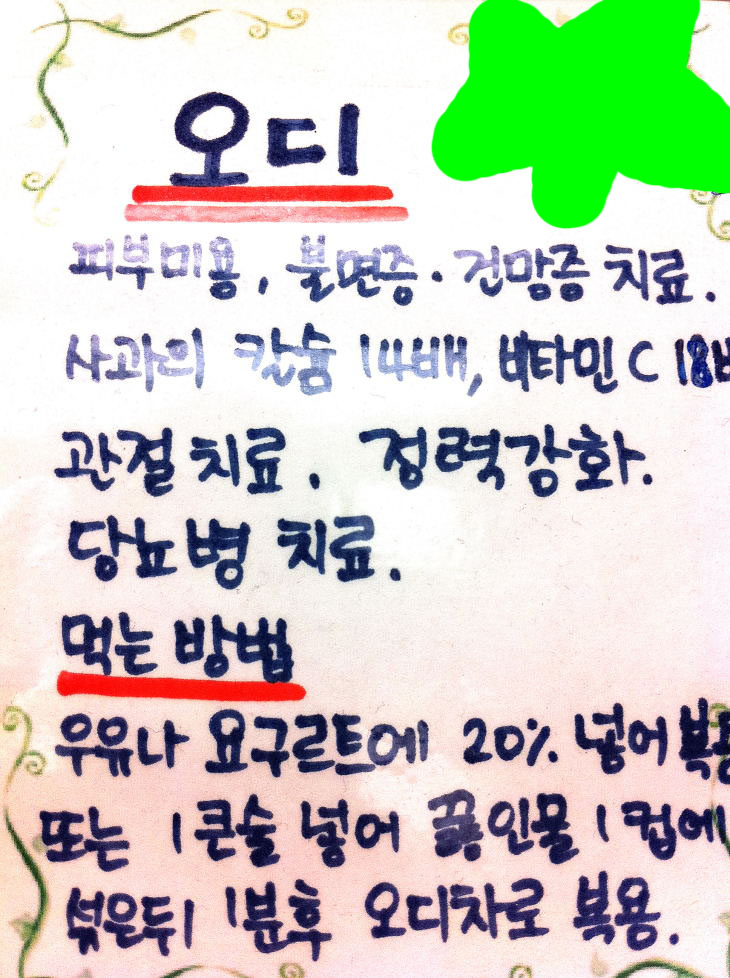 오디
피부미용, 불면증·건망증 치료.
사과의 칼슘 14배, 비타민 C 18배
관절 치료. 정력강화.
당뇨병 치료.
먹는 방법
우유나 요구르트에 20% 넣어 복용
또는 1큰술 넣어 끓인물 1컵에
섞은뒤 1분후 오디차로 복용.